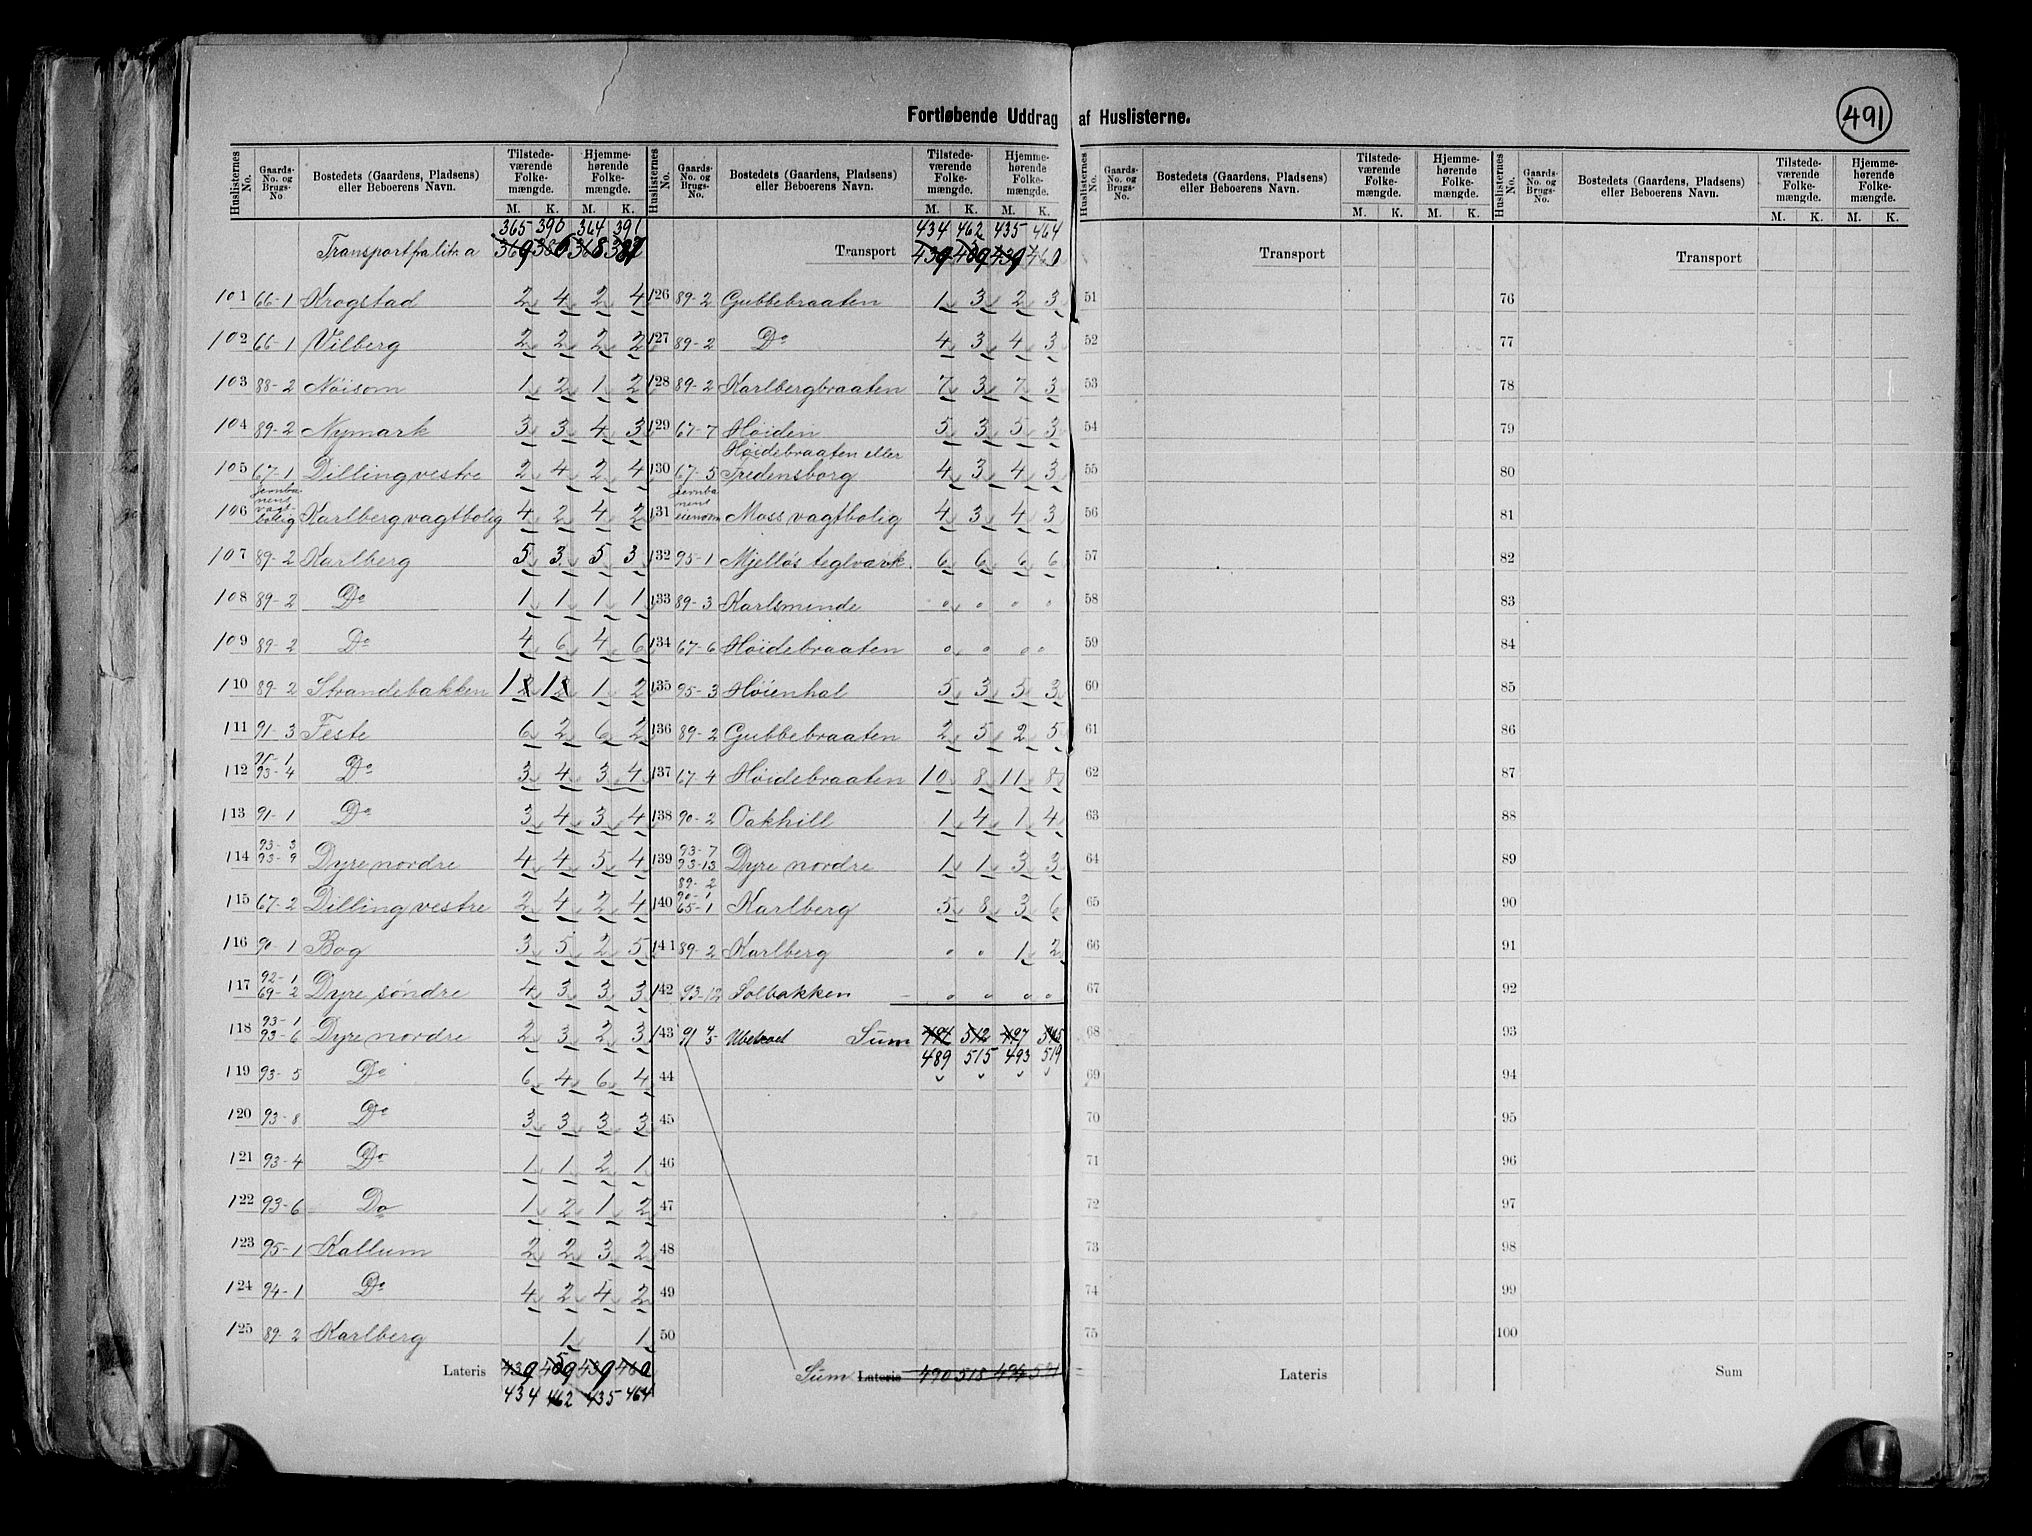 Fortløbende Uddrag af Huslisterne.
491
Huslisternes No. | Gaards-No. og Brugs-No | Bostedets (Gaardens, Pladsens) eller Beboerens Navn. | Tilstedeværende Folkemængde. M. K. | Hjemmehørende Folkemængde. M. K.
365 390 364 391
Transport fra litra a
101 66-1 Krogstad 2 4 2 4
102 66-1 Vilberg 2 2 2 2
103 88-2 Nöisom 1 2 1 2
104 89-2 Nymark 3 3 4 3
105 67-1 Dilling vestre 2 4 2 4
106 Jernbanens vagtbolig Karlberg vagtbolig 4 2 4 2
107 89-2 Karlberg 5 3 5 3
108 89-2 Do 1 1 1 1
109 89-2 Do 4 6 4 6
110 89-2 Strandebakken 1 1 1 2
111 91-3 Feste 6 2 6 2
112 91-1 93-4 Do 3 4 3 4
113 91-1 Do 3 4 3 4
114 93-3 93-9 Dyre nordre 4 4 5 4
115 67-2 Dilling vestre 2 4 2 4
116 90-1 Bog 3 5 2 5
117 92-1 69-2 Dyre söndre 4 3 3 3
118 93-1 93-6 Dyre nordre 2 3 2 3
119 93-5 Do 6 4 6 4
120 93-8 Do 3 3 3 3
121 93-4 Do 1 1 2 1
122 93-6 Do 1 2 1 2
123 95-1 Kallum 2 2 3 2
124 94-1 Do 4 2 4 2
125 89-2 Karlberg 1 1
Lateris 439 459 439 460
434 462 435 464
Huslisternes No. | Gaards-No. og Brugs-No. | Bostedets (Gaardens, Pladsens) eller Beboerens Navn. | Tilstedeværende Folkemængde. M. K. | Hjemmehørende Folkemængde. M. K.
434 462 435 464
Transport 439 459 439 460
126 89-2 Gubbebraaten 1 3 2 3
127 89-2 Do 4 3 4 3
128 89-2 Karlbergbraaten 7 3 7 3
129 67-7 Höiden 5 3 5 3
130 67-5 Höidebraaten eller Fredensborg 4 3 4 3
131 Jernbanens eiendom Moss vagtbolig 4 3 4 3
132 95-1 Mjellös teglværk. 6 6 6 6
133 89-3 Karlsminde " " " "
134 67-6 Höidebraaten " " " "
135 95-3 Höienhal 5 3 5 3
136 89-2 Gubbebraaten 2 5 2 5
137 67-4 Höidebraaten 10 8 11 8
138 90-2 Oakhill 1 4 1 4
139 93-7 93-13 Dyre nordre 1 1 3 3
140 89-2 90-1 65-1 Karlberg 5 8 3 6
141 89-2 Karlberg " " 1 2
142 93-12 Solbakken " " " "
143 91 4/5 Ubeboet Sum 512
489 515 493 519
44
45
46
47
48
49
50
Sum Lateris 490 518
Huslisternes No. | Gaards-No. og Brugs-No. | Bostedets (Gaardens, Pladsens) eller Beboerens Navn. | Tilstedeværende Folkemængde. M. K. | Hjemmehørende Folkemængde. M. K.
Transport
51
52
53
54
55
56
57
58
59
60
61
62
63
64
65
66
67
68
69
70
71
72
73
74
75
Lateris
Huslisternes No. | Gaards-No. og Brugs-No. | Bostedets (Gaardens, Pladsens) eller Beboerens Navn. | Tilstedeværende Folkemængde. M. K. | Hjemmehørende Folkemængde. M. K.
Transport
76
77
78
79
80
81
82
83
84
85
86
87
88
89
90
91
92
93
94
95
96
97
98
99
100
Sum